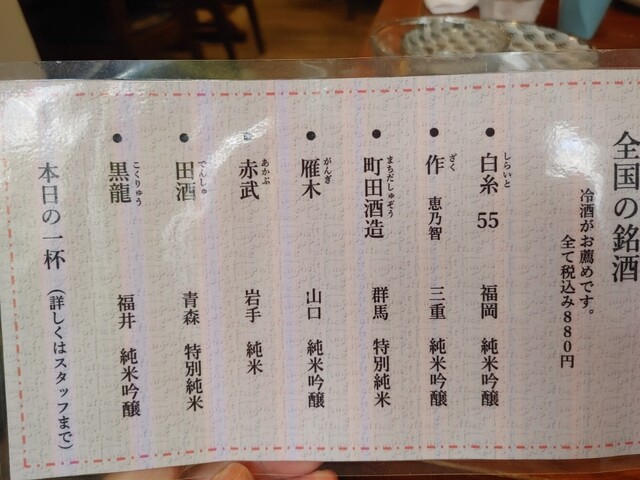 全国の銘酒
冷酒がお薦めです。
全て税込み880円
● 白糸 55 福岡 純米吟醸
しらいと
● 作 恵乃智 三重 純米吟醸
ざく
● 町田酒造 群馬 特別純米
まちだしゅぞう
● 雁木 山口 純米吟醸
がんぎ
● 赤武 岩手 純米
あかぶ
● 田酒 青森 特別純米
でんしゅ
● 黒龍 福井 純米吟醸
こくりゅう
本日の一杯 (詳しくはスタッフまで)